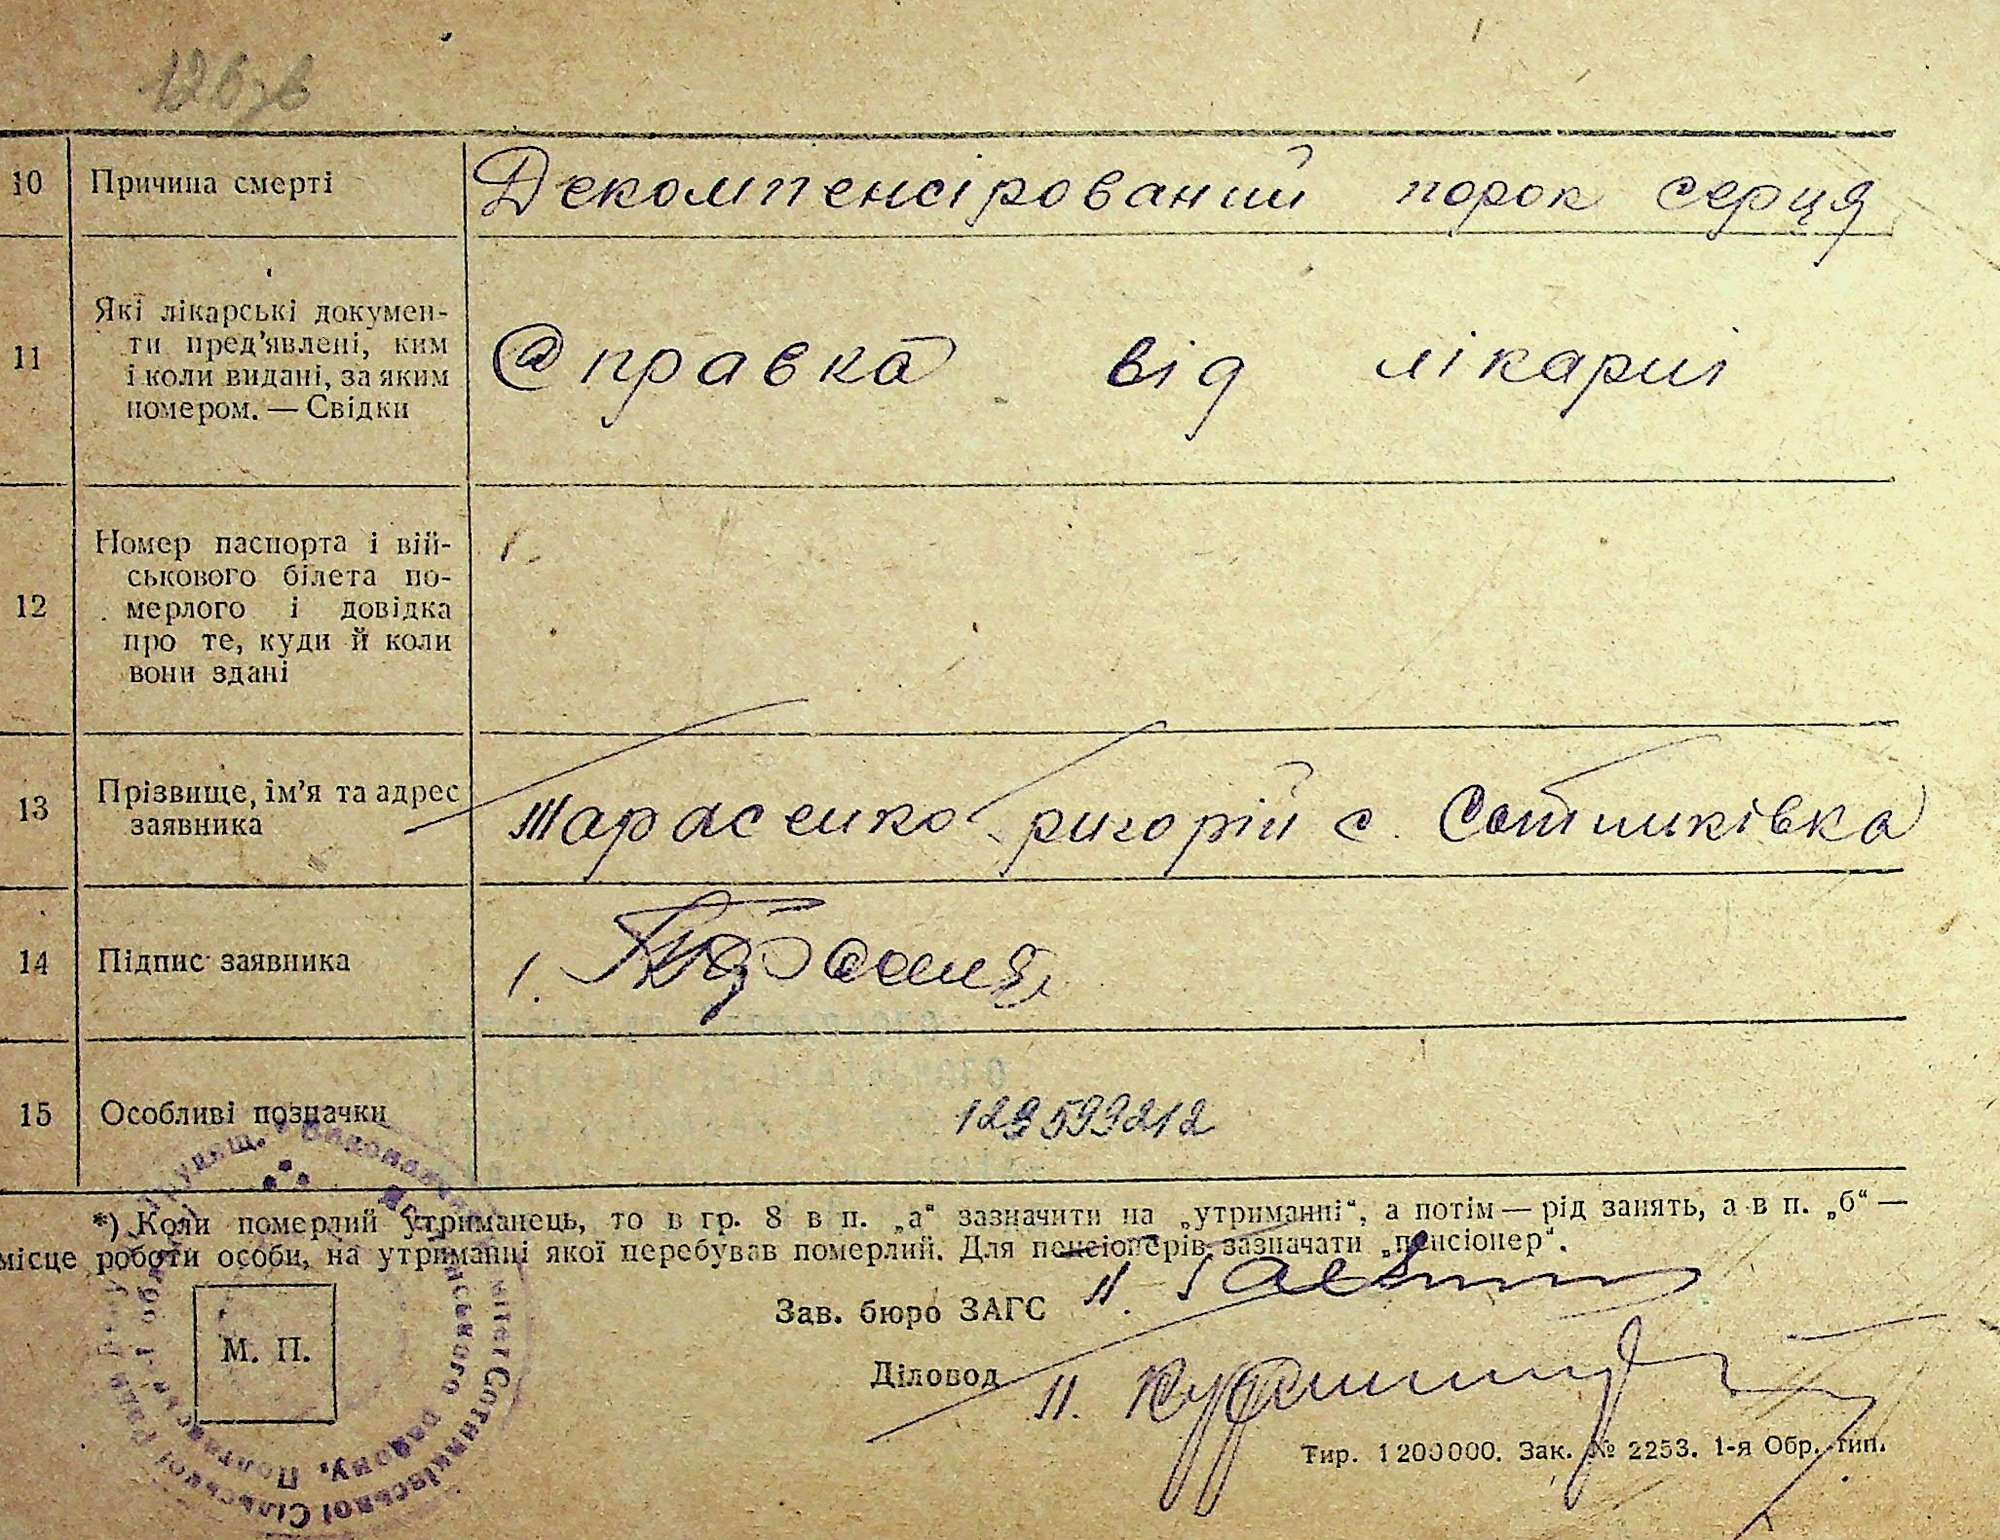 126зв
10 Причина смерті Декомпенсірований порок серця
Які лікарські докумен-
ти пред'явлені, ким
11 і коли видані, за яким Справка від лікарні
номером. — Свідки
Номер паспорта і вій-
ськового білета по-
12 мерлого і довідка
про те, куди й коли
вони здані
13 Прізвище, ім'я та адрес Тарасенко Григорій с. Сотниківка
заявника
14 Підпис заявника
15 Особливі позначки 129599212
*) Коли померлий утриманець, то в гр. 8 в п. „а“ зазначити на „утриманні“, а потім — рід занять, а в п. „б“ —
місце роботи особи, на утриманні якої перебував померлий. Для пенсіонерів зазначати „пенсіонер“.
Зав. бюро ЗАГС
М. П.
Діловод
Тир. 1200000. Зак. № 2253. 1-я Обр. тип.
Сотниківської Сільської Ради
району, Полтавської